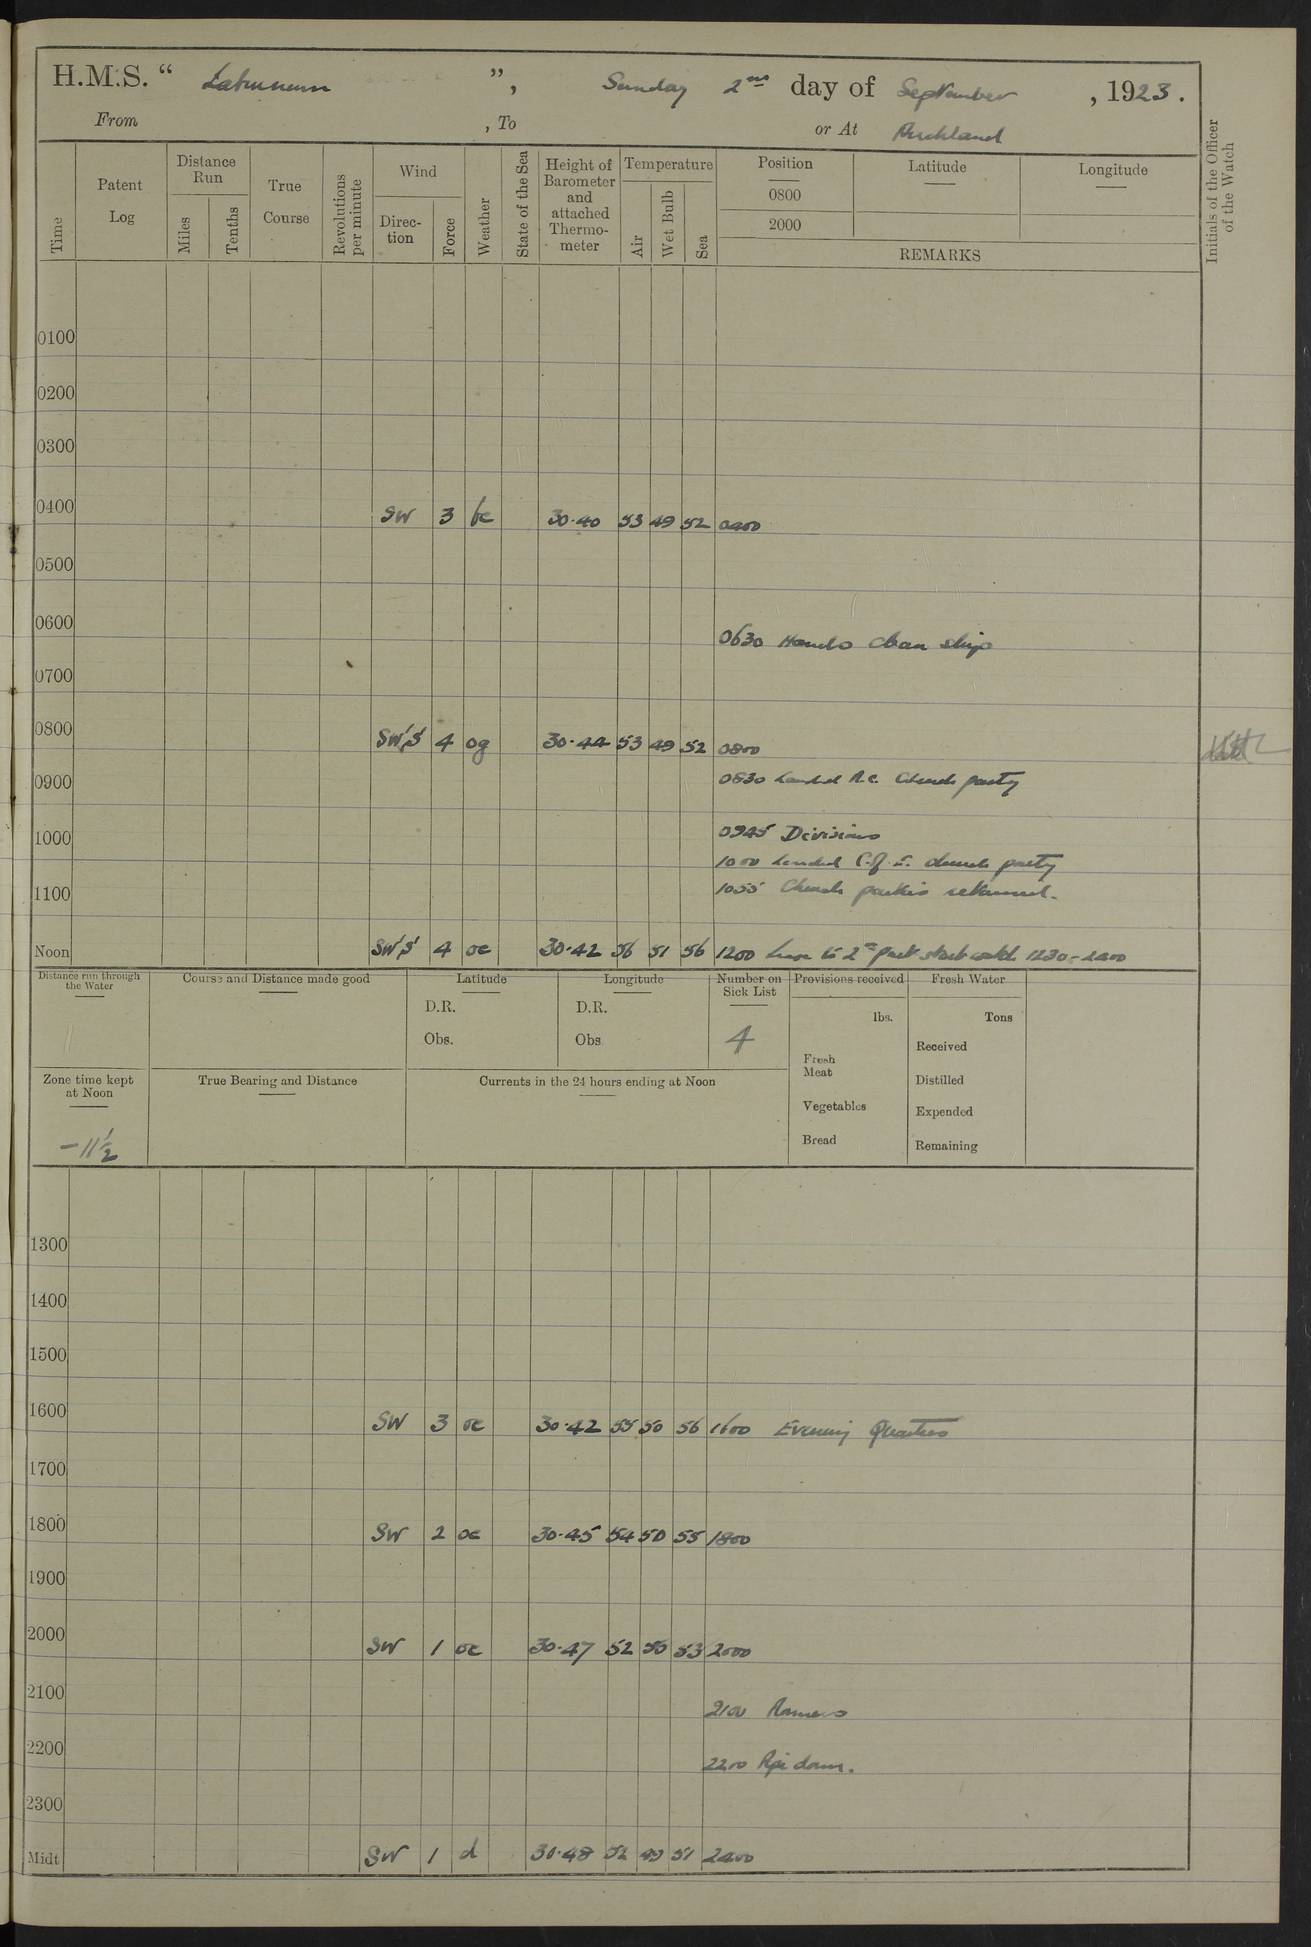 H.M.S. “ Laburnum ”, Sunday 2nd day of September, 1923.
From , To or At Auckland
Time Patent Log Distance Run Miles Tenths True Course Revolutions per minute Wind Direc-tion Force Weather State of the Sea Height of Barometer and attached Thermo-meter Temperature Air Wet Bulb Sea Position 0800 2000 Latitude Longitude Initials of the Officer of the Watch
REMARKS
0100
0200
0300
0400 SW 3 bc 30.40 53 49 52 0400
0500
0600
0630 Hands clean ship
0700
0800 SW'S' 4 og 30.44 53 49 52 0800
0830 Landed R.C. Church party
0900
0945 Divisions
1000
1000 Landed C. of E. church party
1055 Church parties returned.
1100
Noon SW'S' 4 oc 30.42 56 51 56 1200 Leave to 2nd part starb watch 1230-2400
Distance run through the Water Course and Distance made good Latitude Longitude Number on Sick List Provisions received Fresh Water
D.R. D.R. lbs. Tons
Obs. Obs 4 Received
Fresh Meat
Zone time kept at Noon True Bearing and Distance Currents in the 24 hours ending at Noon Distilled
Vegetables Expended
-11½ Bread Remaining
1300
1400
1500
1600 SW 3 oc 30.42 55 50 56 1600 Evening Quarters
1700
1800 SW 2 oc 30.45 54 50 55 1800
1900
2000 SW 1 oc 30.47 52 50 53 2000
2100
2100 Rounds
2200
2200 Pipe down.
2300
Midt SW 1 d 30.48 52 49 51 2400